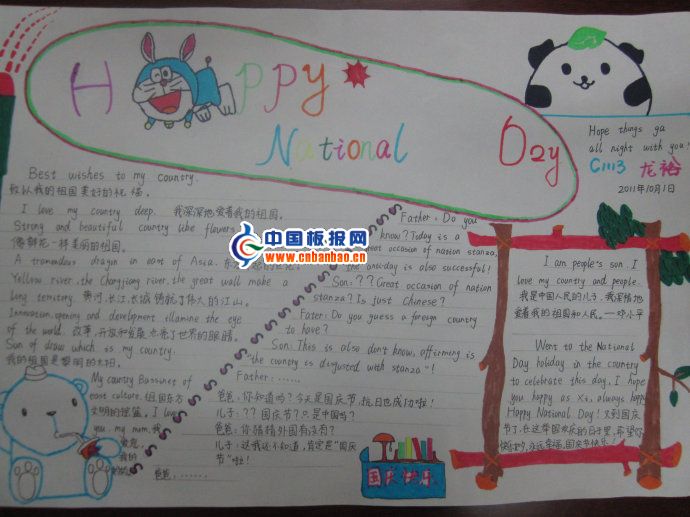 Happy
National Day
Hope things ga
all night with you!
C1113 龙裕
2011年10月1日
Best wishes to my country.
致以我的祖国美好的祝福.
I love my country deep. 我深深地爱着我的祖国.
Strong and beautiful country like flowers
像鲜花一样美丽的祖国.
A tremendous dragon in east of Asia.
Yellow river, the Changjiang river, the great wall make a
long territory. 黄河,长江,长城铸就了伟大的江山.
Innovation, opening and development illumine the eye
of the world. 改革,开放和发展点亮了世界的眼睛.
Sun of draw which is my country.
我的祖国是黎明的太阳.
My country Bassinet of
east culture. 祖国东方
文明的摇篮. I love
you, my mum. 我
爱您,
我的
Father: Do you
know? Today is a
great occasion of nation stanza,
the anti-day is also successful!
Son: ?? Great occasion of nation
stanza? Is just Chinese?
Fater: Do you guess a foreign country
to have?
Son: This is also don't know, affirming is
"the country is disgusted with stanza"!
Father: ......
爸爸: 你知道吗? 今天是国庆节,抗日也成功啦!
儿子: ?? 国庆节? 只是中国吗?
爸爸: 你猜猜外国有没有?
儿子: 这我还不知道,肯定是“国庆
节”啦!
爸爸: ......
I am people's son. I
love my country and people.
我是中国人民的儿子,我深情地
爱着我的祖国和人民. —邓小平
Went to the National
Day holiday in the country
to celebrate this day, I hope
you happy as Xi, always happy
Happy National Day! 又到国庆
节了,在这举国欢庆的日子里,希望你
永远幸福,国庆节快乐!
国庆快乐
中国板报网
www.cnbanbao.cn